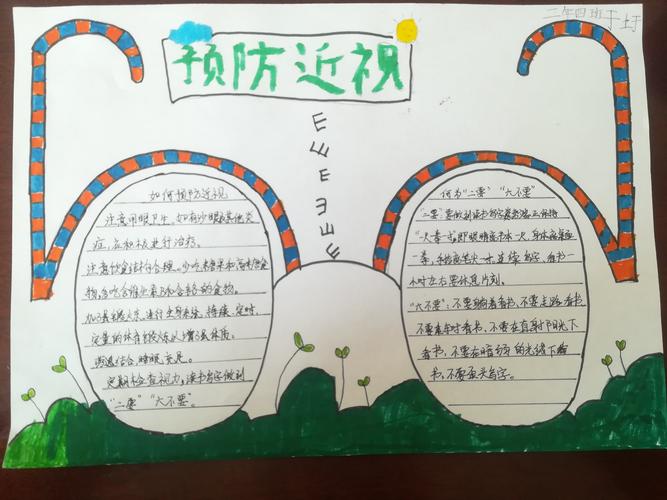 二年四班于
预防近视
E E E E E E
如何预防近视
注意用眼卫生。如有沙眼或其他炎
症,应积极进行治疗。
注意饮食结构合理。少吃糖果和高
物,多吃含维生素和含锌的食物。
加强锻炼,进行持续、定时、
定量的体育锻炼以增强体质。
劳逸结合,睡眠充足。
定期检查视力,读书写字做到
“二要”“六不要”。
何为“二要”“六不要”
“二要”:要做到读书写字姿势端正保持
“一尺一拳一寸”即眼睛离书本一尺,身体离桌一
拳,手指离笔尖一寸。连续写字、看书一
小时左右要休息片刻。
“六不要”:不要躺着看书、不要走路看书、
不要乘车时看书、不要在直射阳光下
看书、不要在暗的光线下
书、不要歪头写字。